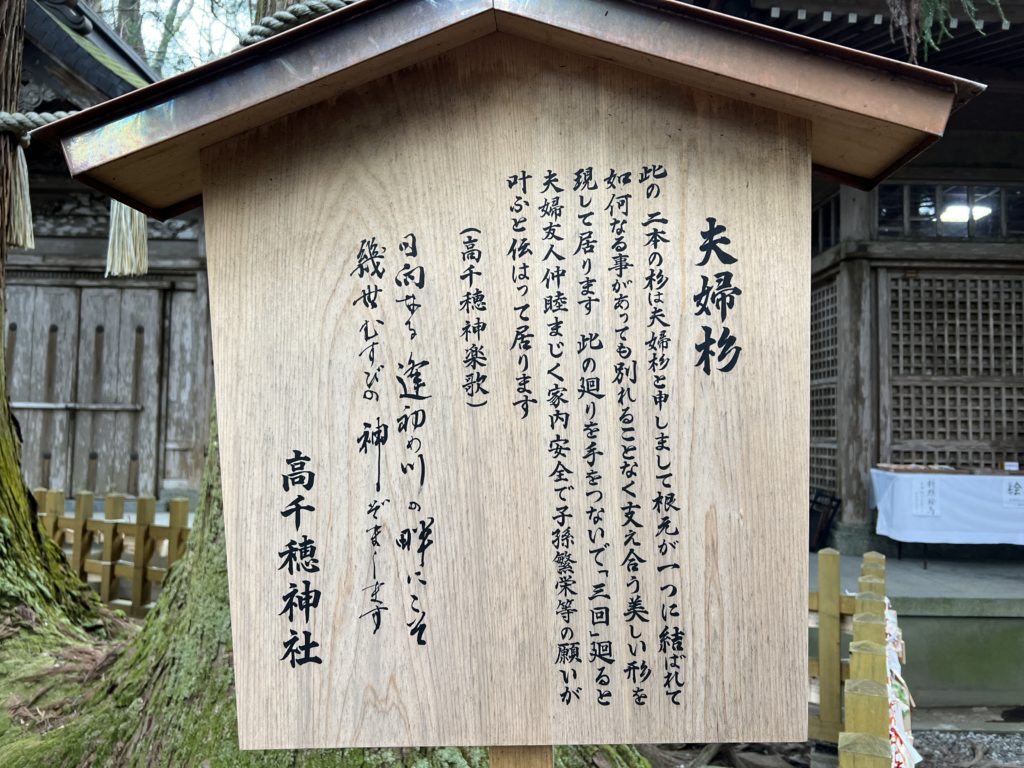 夫婦杉
此の二本の杉は夫婦杉と申しまして根元が一つに結ばれて
如何なる事があっても別れることなく支え合う美しい形を
現して居ります 此の廻りを手をつないで「三回」廻ると
夫婦友人仲睦まじく家内安全で子孫繁栄等の願いが
叶ふと伝はって居ります
(高千穂神楽歌)
日向なる 逢初め川の畔にこそ
幾世むすびの 神ぞまします
高千穂神社
絵